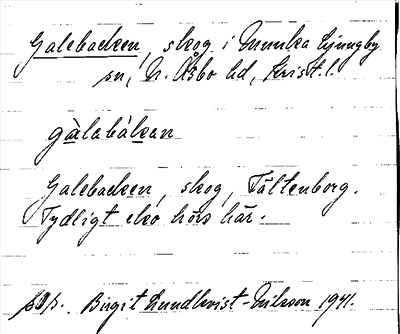 Galebacken, skog i Munka Ljungby
sn, N. Åsbo hd, Krist. l.
gàlabákan
Galebacken, skog, Tåltenborg.
Tydligt eko hörs här.
Birgit Lundkvist-Nilsson 1941.